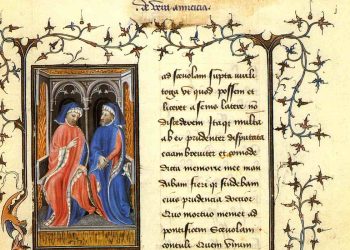 amicicia
ad sceuolam supta uirili
toga vt quod possem et
liceret a senis latere nō
discederem Itaque multa
ab eo prudenter disputata
eciam breuiter et comode
dicta memorie mee man
dabam fieri qz studebam
eius prudencia doctior
Quo mortuo memet ad
pontificem Sceuolam
contuli Quem vnum